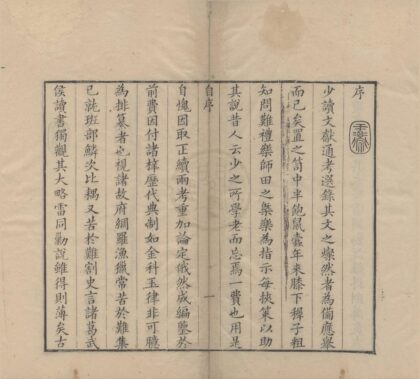 序
少讀文獻通考選錄其文之燦然者為備應舉
而已矣置之笥中半飽鼠蠹年來膝下穉子粗
知問難禮樂師田之槩樂為指示每挾筴以助
其說昔人云少之所學老而忘焉一費也用是
自序
一
自愧因取正續兩考重加論定俄然成編鑒於
前費因付諸梓歷代典制如金科玉律非可臆
為排纂者也視諸故府網羅漁獵常苦於難集
已就班部鱗次比耦又苦於難割史言諸葛武
侯讀書獨觀其大略雷同勦說雖得則薄矣古